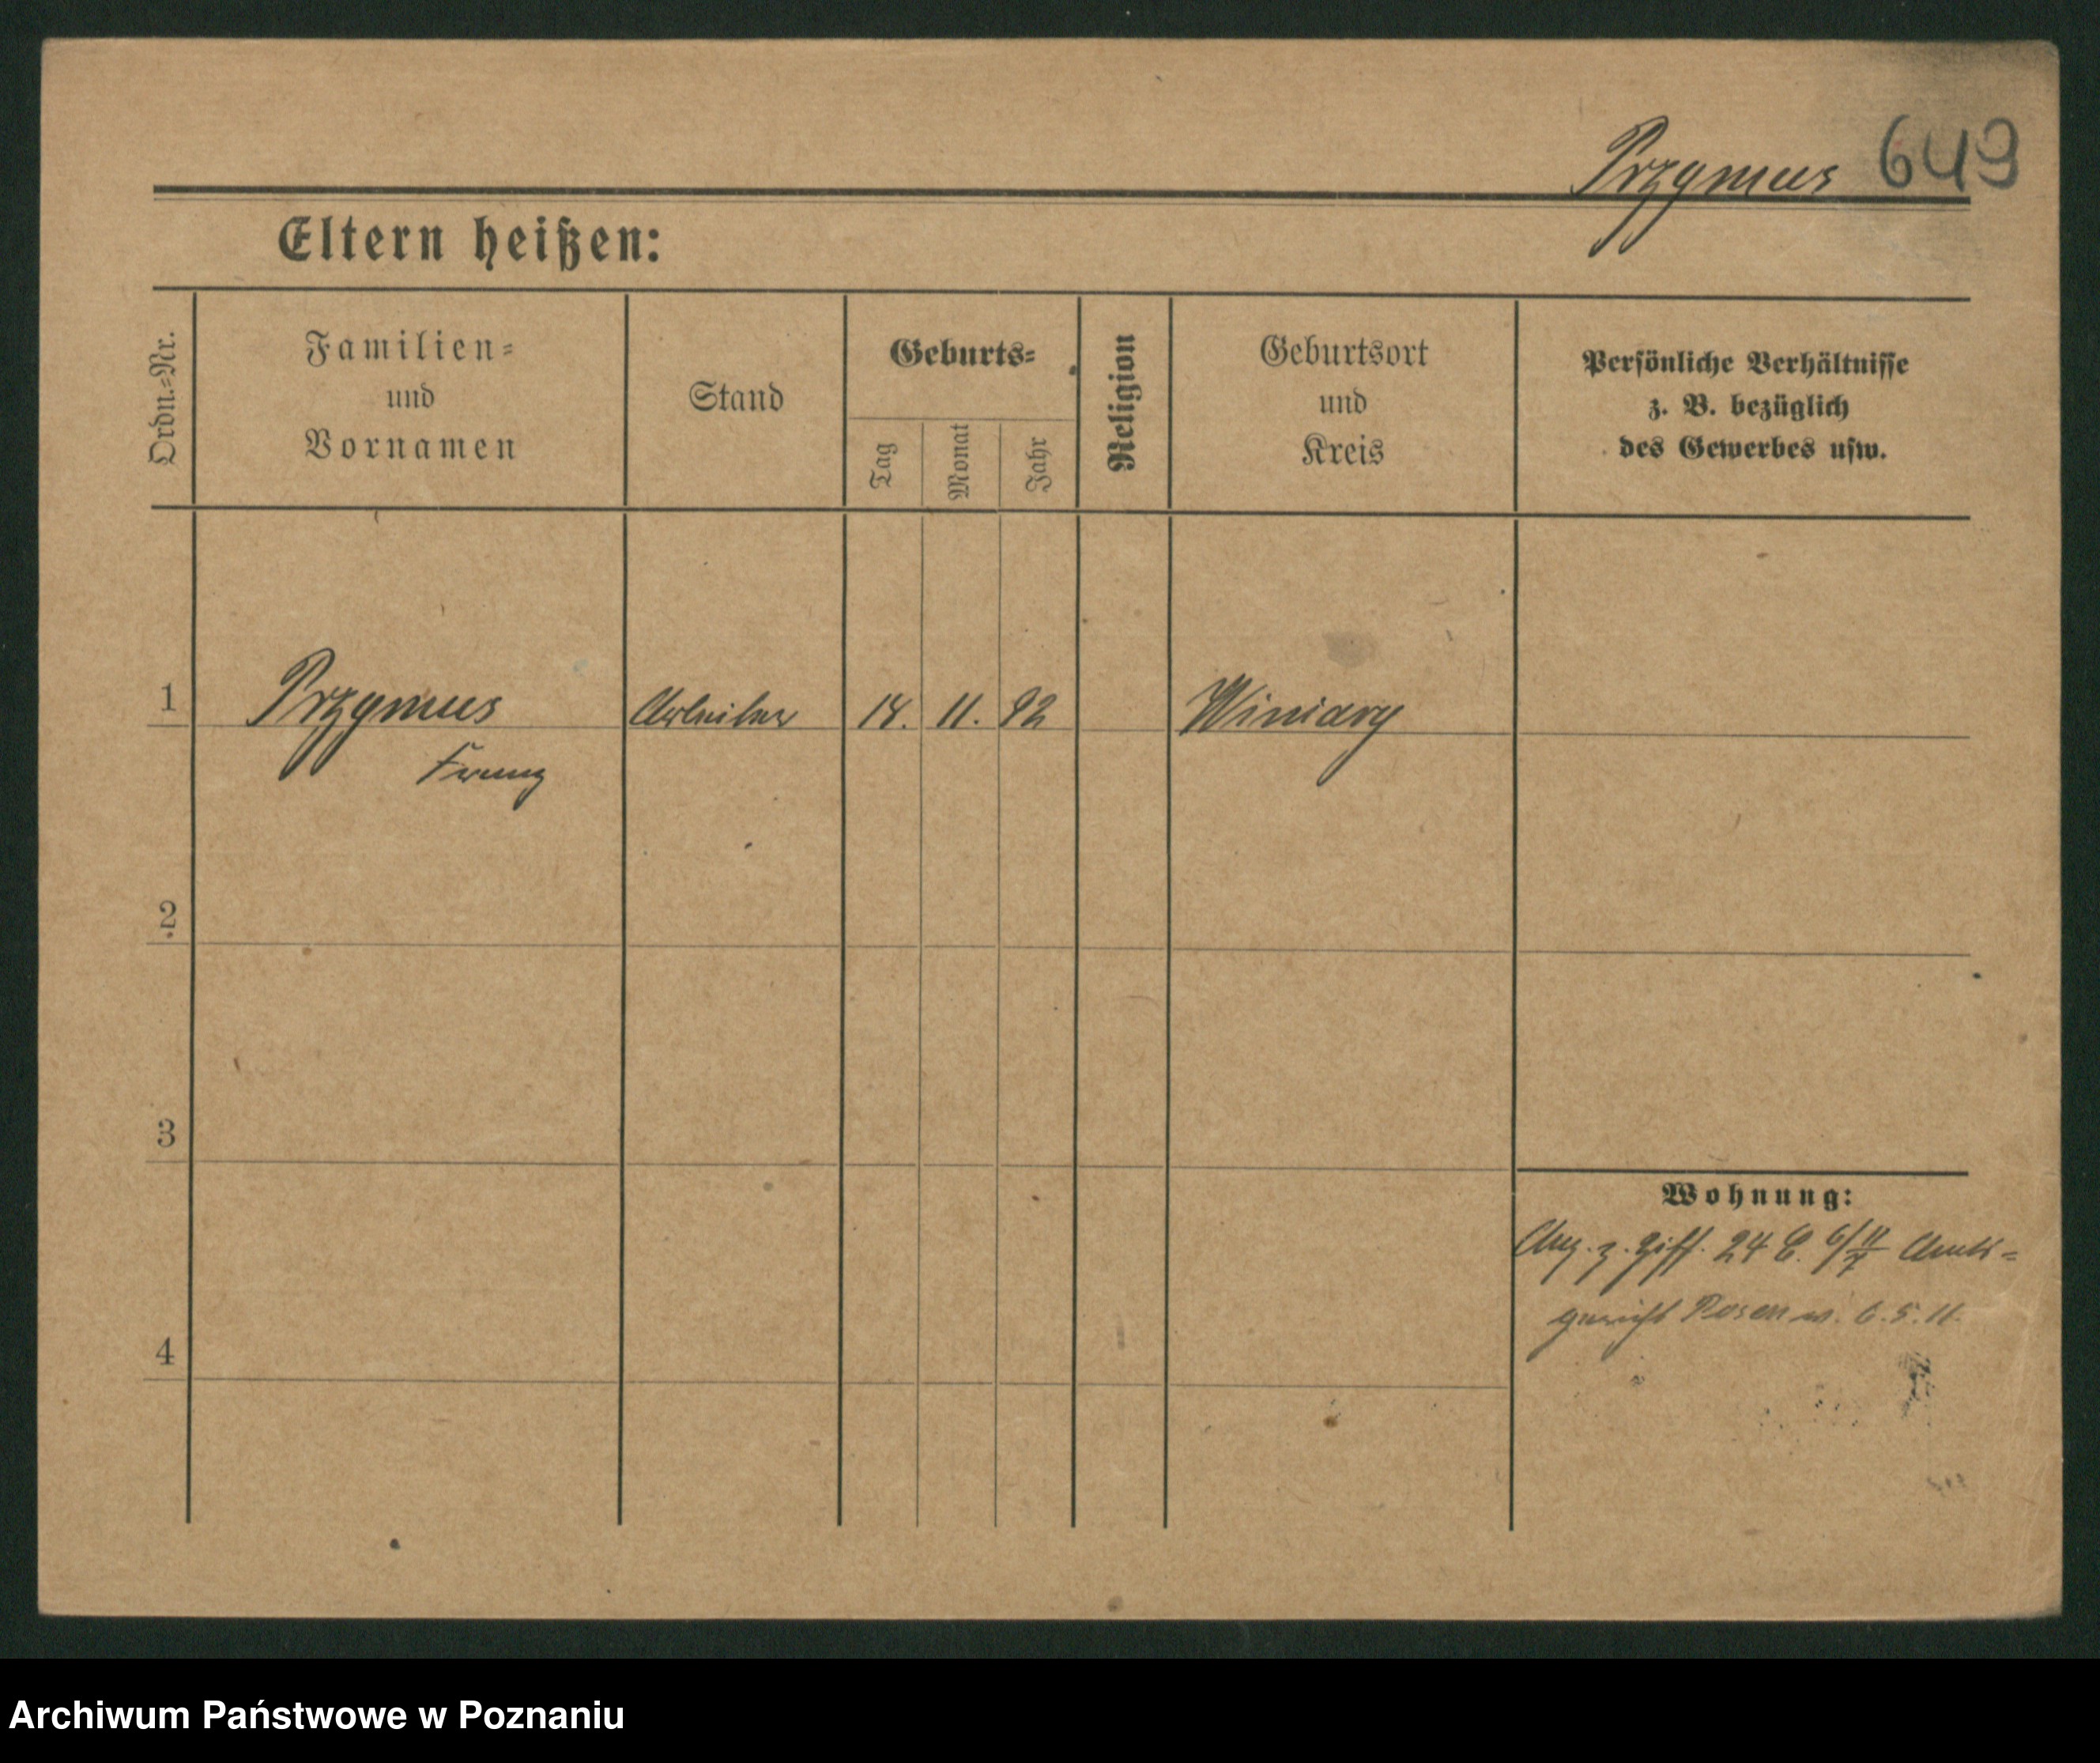 Przymus 649
Eltern heißen:
Ordn.=Nr.
Familien=
und
Vornamen
Stand
Geburts=
Tag
Monat
Jahr
Religion
Geburtsort
und
Kreis
Persönliche Verhältnisse
z. B. bezüglich
des Gewerbes usw.
1 Przymus Arbeiter 11. 92 Winiary
Franz
2
3
4
Wohnung:
z. Ziff. 24 Amts=
gericht Posen v. 6.5.11.
Archiwum Państwowe w Poznaniu